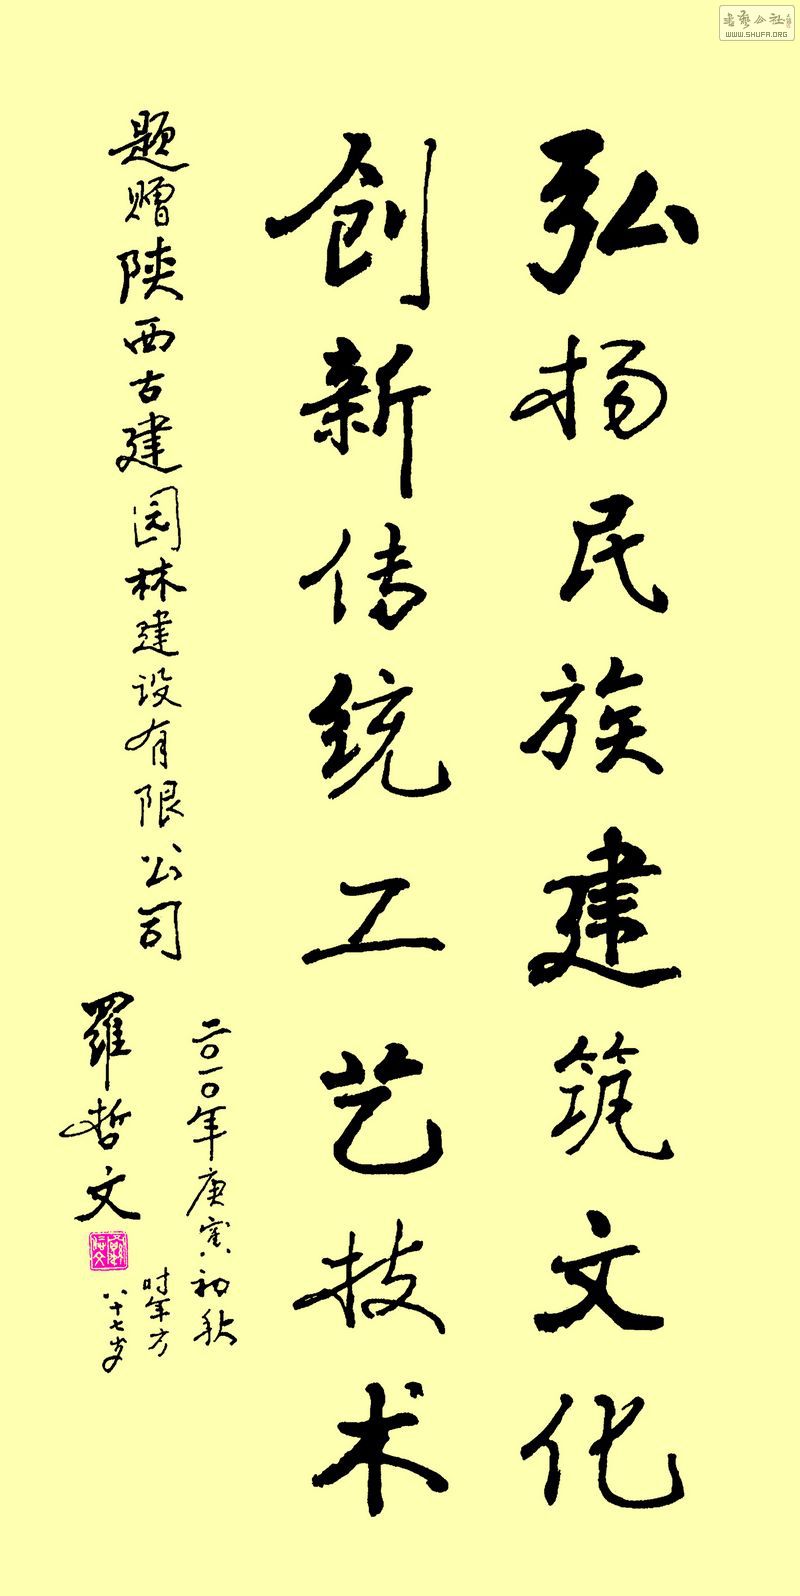 弘扬民族建筑文化
创新传统工艺技术
题赠陕西古建园林建设有限公司
二〇一〇年庚寅初秋
羅哲文
时年方
八十七岁
WWW.SHUFA.ORG